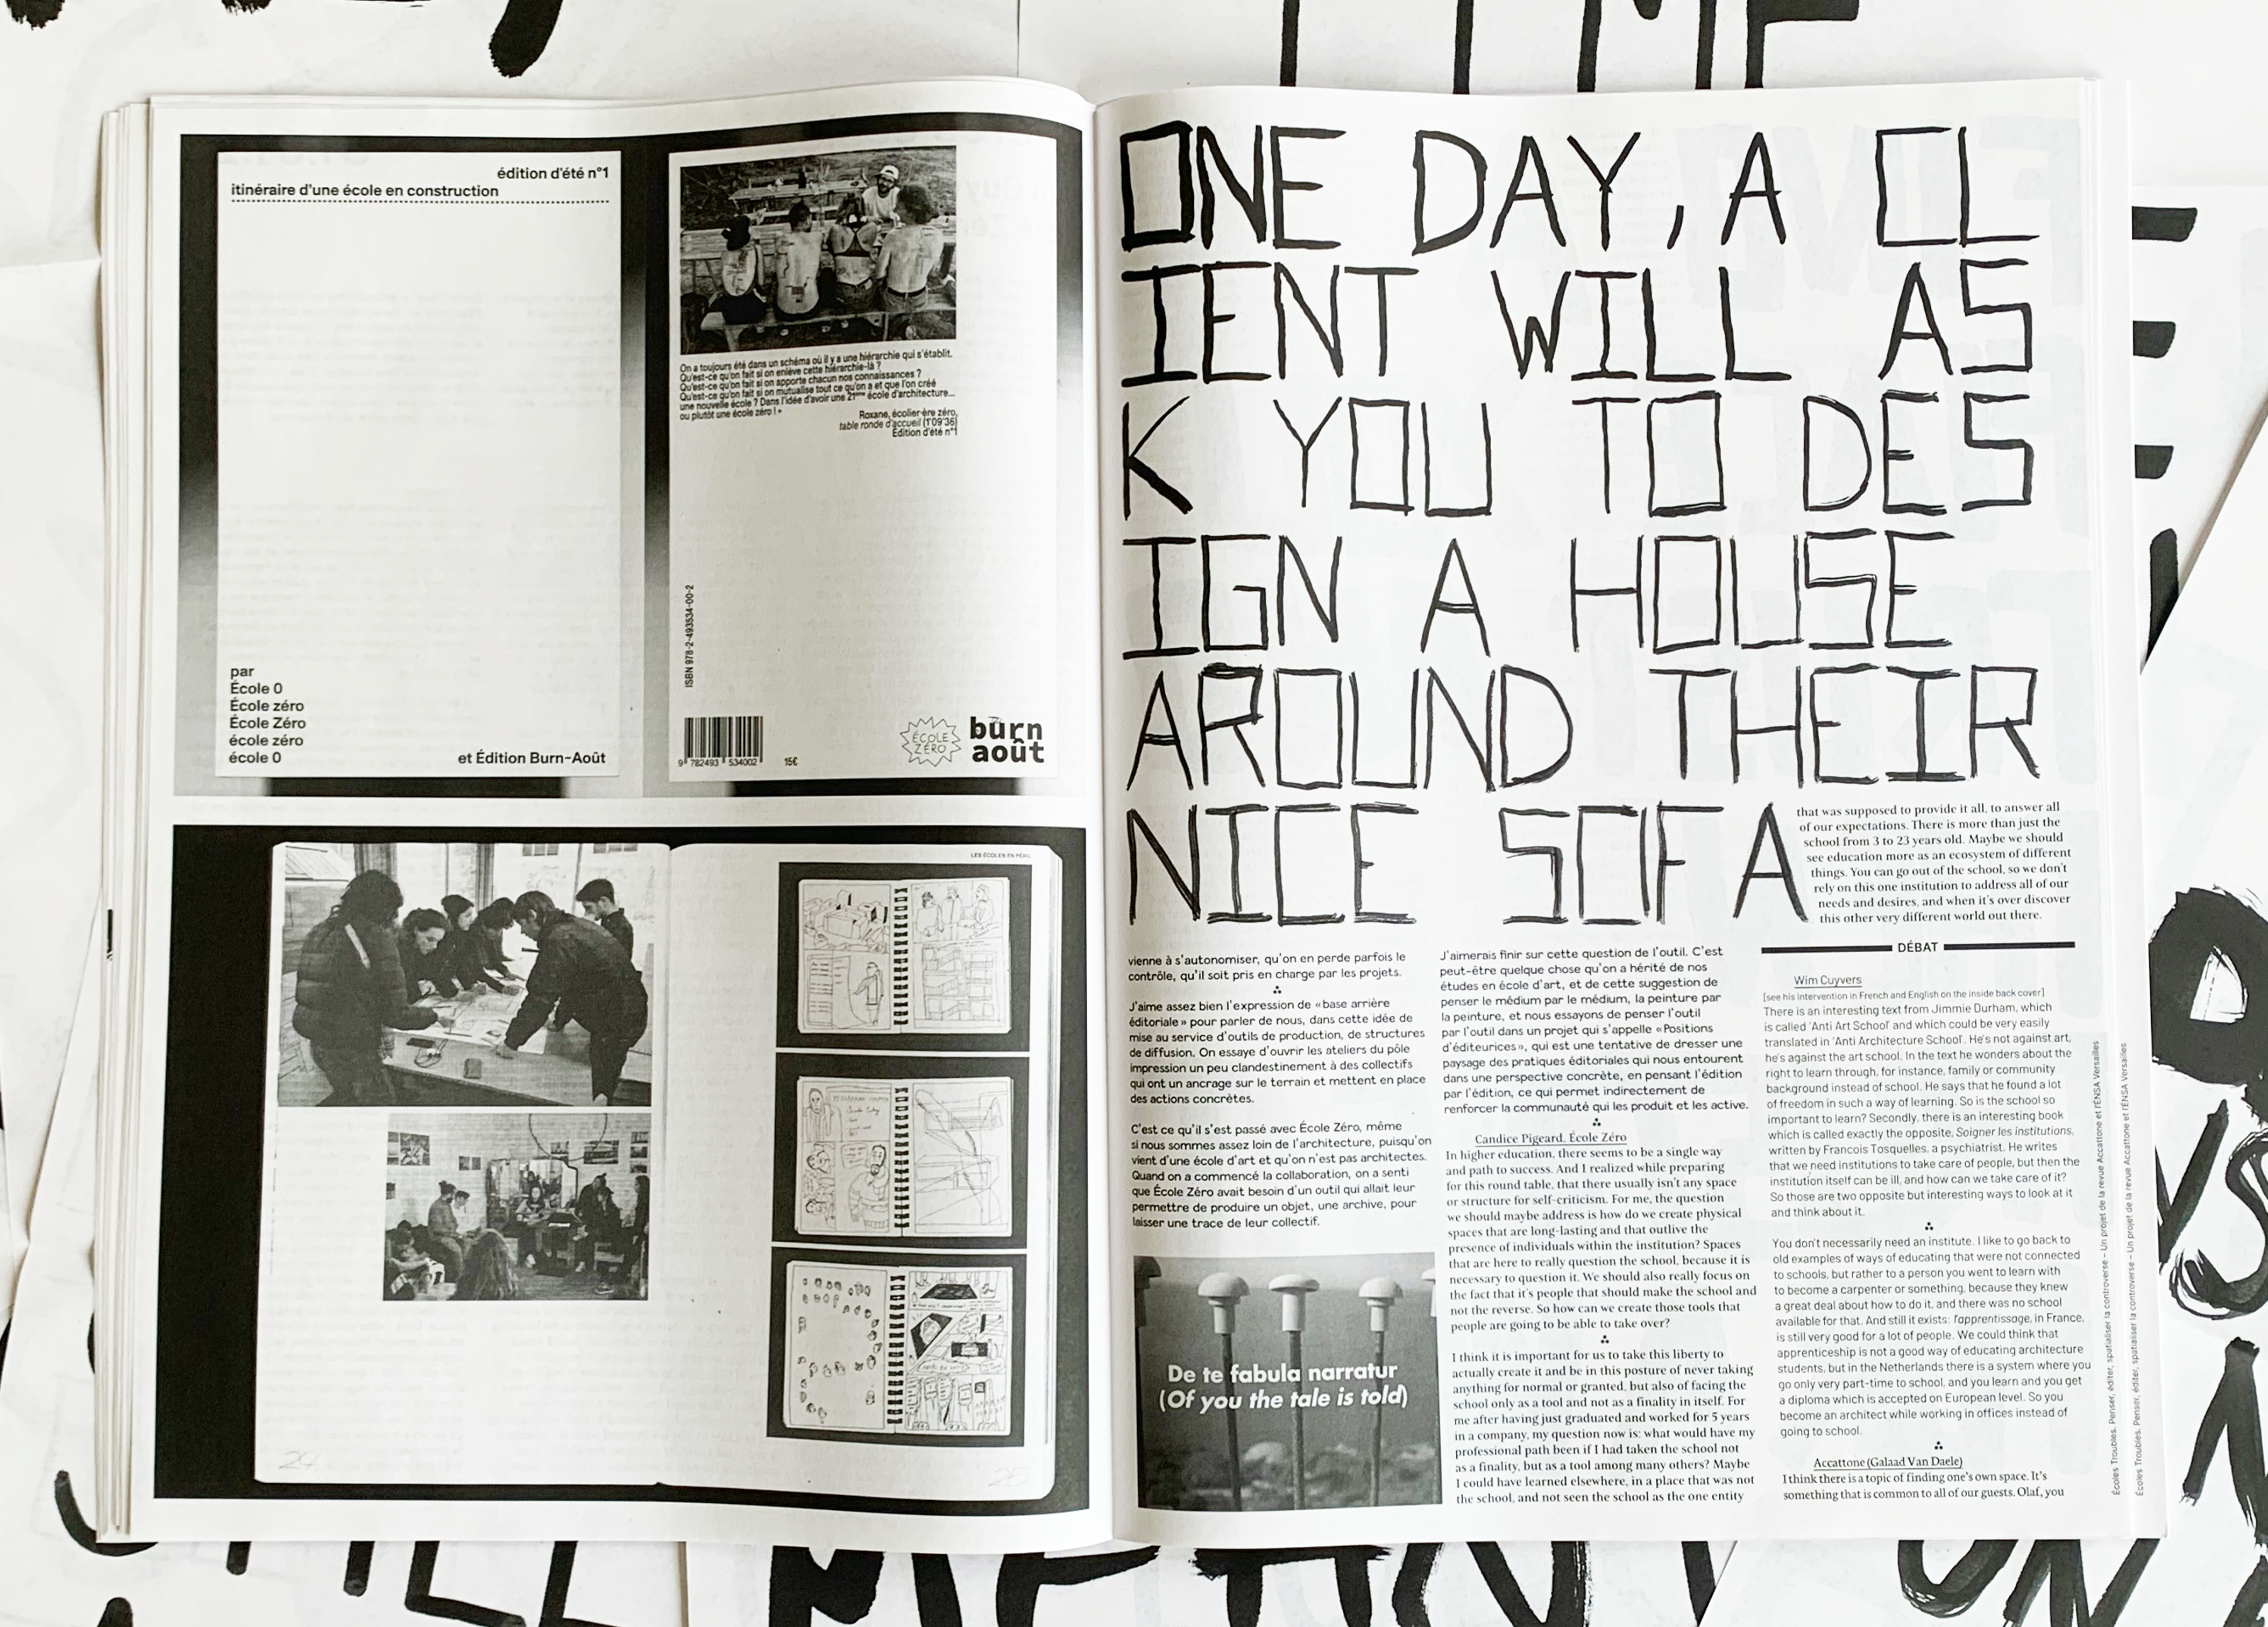 édition d'été n°1
itinéraire d'une école en construction
par
École 0
École zéro
École Zéro
école zéro
école 0
et Édition Burn-Août
On a toujours été dans un schéma où il y a une hiérarchie qui s'établit.
Qu'est-ce qu'on fait si on enlève cette hiérarchie-là ?
Qu'est-ce qu'on fait si on apporte chacun nos connaissances ?
Qu'est-ce qu'on fait si on mutualise tout ce qu'on a et que l'on créé
une nouvelle école ? Dans l'idée d'avoir une 21ème école d'architecture...
ou plutôt une école zéro ! »
Roxane, écolier·ère zéro,
table ronde d'accueil (1'09'36)
Édition d'été n°1
ISBN 978-2-493534-00-2
9 782493 534002
15€
ÉCOLE
ZÉRO
burn
août
LES ÉCOLES EN PÉRIL
24
25
ONE DAY, A CL
IENT WILL AS
K YOU TO DES
IGN A HOUSE
AROUND THEIR
NICE SOFA
that was supposed to provide it all, to answer all
of our expectations. There is more than just the
school from 3 to 23 years old. Maybe we should
see education more as an ecosystem of different
things. You can go out of the school, so we don't
rely on this one institution to address all of our
needs and desires, and when it's over discover
this other very different world out there.
vienne à s'autonomiser, qu'on en perde parfois le
contrôle, qu'il soit pris en charge par les projets.
J'aime assez bien l'expression de « base arrière
éditoriale » pour parler de nous, dans cette idée de
mise au service d'outils de production, de structures
de diffusion. On essaye d'ouvrir les ateliers du pôle
impression un peu clandestinement à des collectifs
qui ont un ancrage sur le terrain et mettent en place
des actions concrètes.
C'est ce qu'il s'est passé avec École Zéro, même
si nous sommes assez loin de l'architecture, puisqu'on
vient d'une école d'art et qu'on n'est pas architectes.
Quand on a commencé la collaboration, on a senti
que École Zéro avait besoin d'un outil qui allait leur
permettre de produire un objet, une archive, pour
laisser une trace de leur collectif.
De te fabula narratur
(Of you the tale is told)
J'aimerais finir sur cette question de l'outil. C'est
peut-être quelque chose qu'on a hérité de nos
études en école d'art, et de cette suggestion de
penser le médium par le médium, la peinture par
la peinture, et nous essayons de penser l'outil
par l'outil dans un projet qui s'appelle « Positions
d'éditeurices », qui est une tentative de dresser une
paysage des pratiques éditoriales qui nous entourent
dans une perspective concrète, en pensant l'édition
par l'édition, ce qui permet indirectement de
renforcer la communauté qui les produit et les active.
Candice Pigeard, École Zéro
In higher education, there seems to be a single way
and path to success. And I realized while preparing
for this round table, that there usually isn't any space
or structure for self-criticism. For me, the question
we should maybe address is how do we create physical
spaces that are long-lasting and that outlive the
presence of individuals within the institution? Spaces
that are here to really question the school, because it is
necessary to question it. We should also really focus on
the fact that it's people that should make the school and
not the reverse. So how can we create those tools that
people are going to be able to take over?
I think it is important for us to take this liberty to
actually create it and be in this posture of never taking
anything for normal or granted, but also of facing the
school only as a tool and not as a finality in itself. For
me after having just graduated and worked for 5 years
in a company, my question now is: what would have my
professional path been if I had taken the school not
as a finality, but as a tool among many others? Maybe
I could have learned elsewhere, in a place that was not
the school, and not seen the school as the one entity
DÉBAT
Wim Cuyvers
[see his intervention in French and English on the inside back cover]
There is an interesting text from Jimmie Durham, which
is called 'Anti Art School' and which could be very easily
translated in 'Anti Architecture School'. He's not against art,
he's against the art school. In the text he wonders about the
right to learn through, for instance, family or community
background instead of school. He says that he found a lot
of freedom in such a way of learning. So is the school so
important to learn? Secondly, there is an interesting book
which is called exactly the opposite, Soigner les institutions,
written by Francois Tosquelles, a psychiatrist. He writes
that we need institutions to take care of people, but then the
institution itself can be ill, and how can we take care of it?
So those are two opposite but interesting ways to look at it
and think about it.
You don't necessarily need an institute. I like to go back to
old examples of ways of educating that were not connected
to schools, but rather to a person you went to learn with
to become a carpenter or something, because they knew
a great deal about how to do it, and there was no school
available for that. And still it exists: l'apprentissage, in France,
is still very good for a lot of people. We could think that
apprenticeship is not a good way of educating architecture
students, but in the Netherlands there is a system where you
go only very part-time to school, and you learn and you get
a diploma which is accepted on European level. So you
become an architect while working in offices instead of
going to school.
Accattone (Galaad Van Daele)
I think there is a topic of finding one's own space. It's
something that is common to all of our guests. Olaf, you
Écoles Troubles. Penser, éditer, spatialiser la controverse – Un projet de la revue Accattone et l'ÉNSA Versailles
Écoles Troubles. Penser, éditer, spatialiser la controverse – Un projet de la revue Accattone et l'ÉNSA Versailles